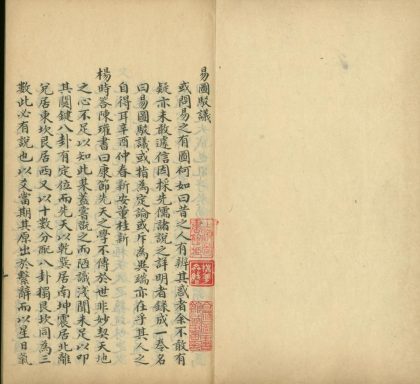 易圖駁議
或問易之有圖何如曰昔之人有辨其惑者余不敢有
疑亦未敢遽信因採先儒諸說之詳明者錄成一卷名
曰易圖駁議或指為定論或斥為異端亦在乎其人之
自得耳辛酉仲春新安董桂新
楊時答陳瓘書曰康節先天之學不傳於世非妙契天地
之心不足以知此某蓋嘗玩之而陋識淺聞未足以叩
其關鍵八卦有定位而先天以乾巽居南坤震居北離
兌居東坎艮居西又以十數分配八卦獨艮坎同為三
數此必有說也以爻當期其原出於繫辭而以星日氣